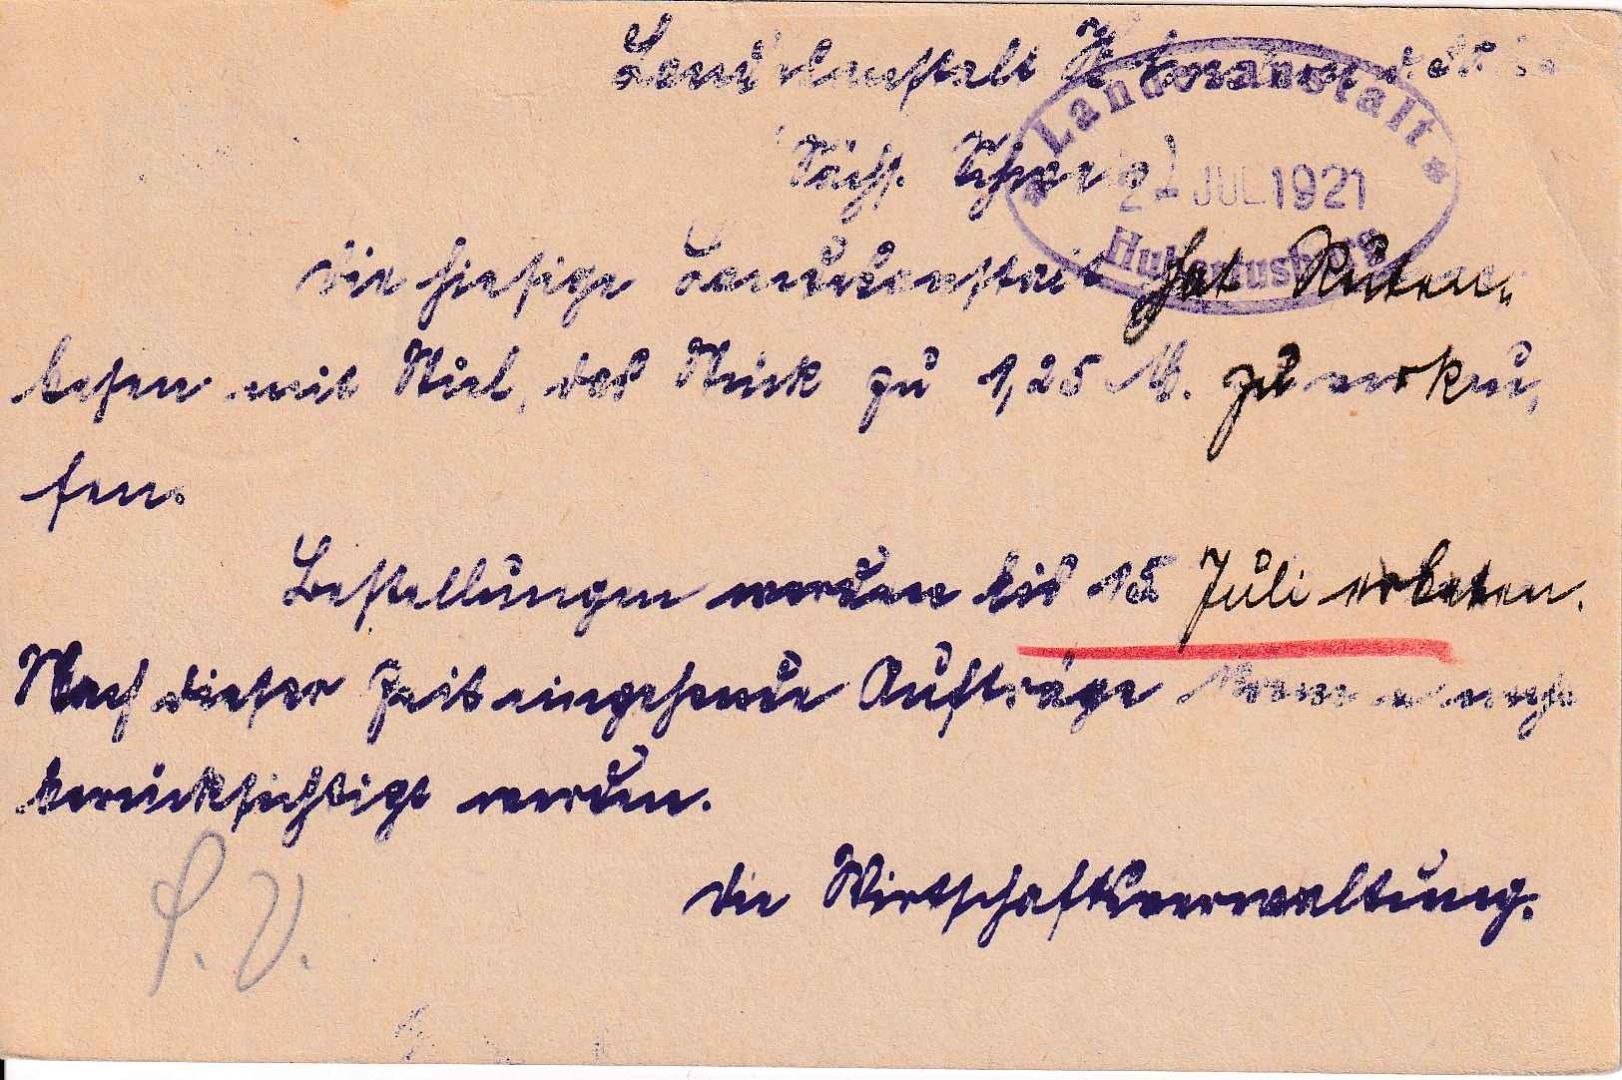 Landesanstalt
Sächs. Schweiz
Landesanstalt
2- JUL 1921
Hubertusburg
Die hiesige Landesanstalt hat Ruten-
besen mit Stiel, das Stück zu 1,25 M. zu verkau-
fen.
Bestellungen werden bis 15 Juli erbeten.
Nach dieser Zeit eingehende Aufträge
berücksichtigt werden.
Die Wirtschaftsverwaltung.